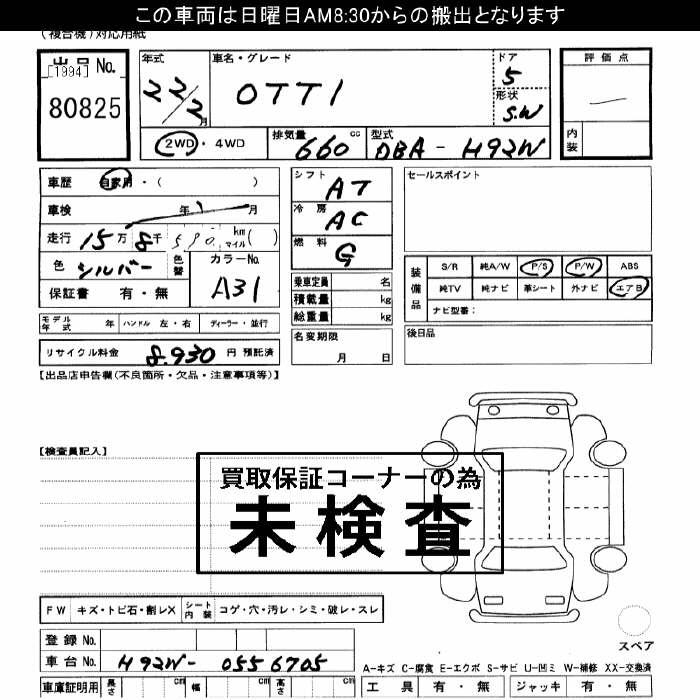 この車両は日曜日AM8:30からの搬出となります
(複合機)対応用紙
出品 No.
[1994]
80825
年式
22/2月
車名・グレード
OTTI
ドア
5
形状
S.W
評価点
内装
2WD・4WD
排気量
660 cc
型式
DBA - H92W
車歴 自家用・( )
車検 年 月
走行 15万 8千 590 km マイル( )
色 シルバー 色替
カラーNo.
A31
保証書 有・無
シフト AT
冷房 AC
燃料 G
乗車定員 名
積載量 kg
総重量 kg
セールスポイント
装備品
S/R 純A/W P/S P/W ABS
純TV 純ナビ 革シート 外ナビ エアB
ナビ型番:
モデル年式 年 ハンドル 左・右 ディーラー・並行
リサイクル料金 8,930 円 預託済
名変期限
月 日
後日品
【出品店申告欄(不良箇所・欠品・注意事項等)】
【検査員記入】
買取保証コーナーの為
未検査
FW キズ・トビ石・割レX シート内装 コゲ・穴・汚レ・シミ・破レ・スレ
登録 No.
車台 No. H92W- 0556705
スペア
A-キズ C-腐食 E-エクボ S-サビ U-凹ミ W-補修 XX-交換済
車庫証明用 長さ cm 幅 cm 高さ cm
工具 有・無 ジャッキ 有・無